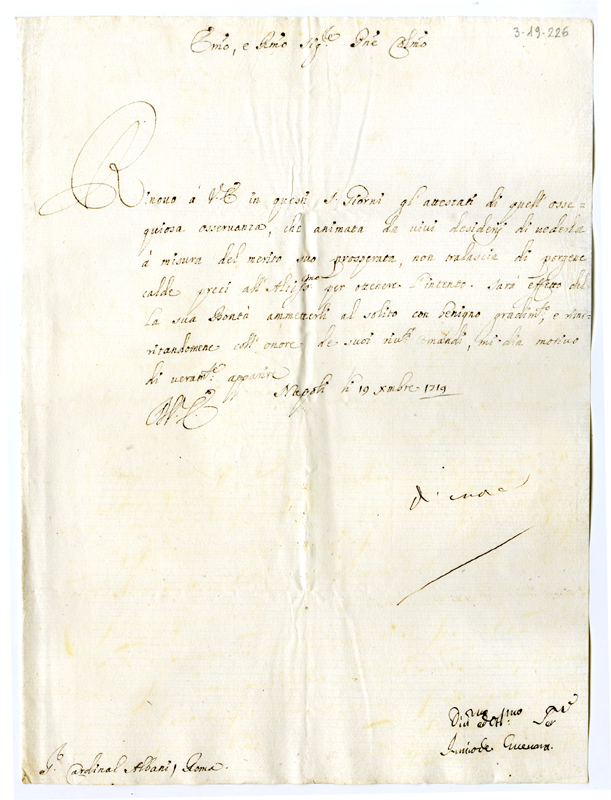 3-19-226
Emo, e Rmo Sig.re Pne Colmo
Rinovo à V.E. in questi S. Giorni gl'attestati di quell'osse-
quiosa osservanza, che animata da vivi desiderij di vederla
à misura del merito suo prosperata, non tralascia di porgere
calde preci all'Altiss.mo per ottenere l'intento. Sarà effetto del
la sua Bontà ammetterli al solito con benigno gradim.to, e
ritandomene coll'onore de suoi riv.ti comandi, mi dia motivo
di veram.te apparire
Napoli li 19 Xmbre 1719
D.V.E.
S.r Cardinal Albani, Roma.
Div.mo ed Obl.mo Ser.e
Guevara.